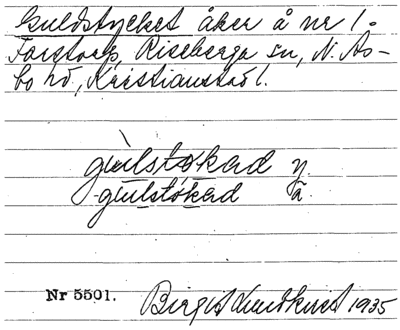 Guldstycket åker å nr 1.
Forstorp, Riseberga sn, N. Ås-
bo hd., Kristianstad l.
gùlstøkad y.
gùlstøkad ä.
Nr 5501.
Birgit Lundkvist 1935